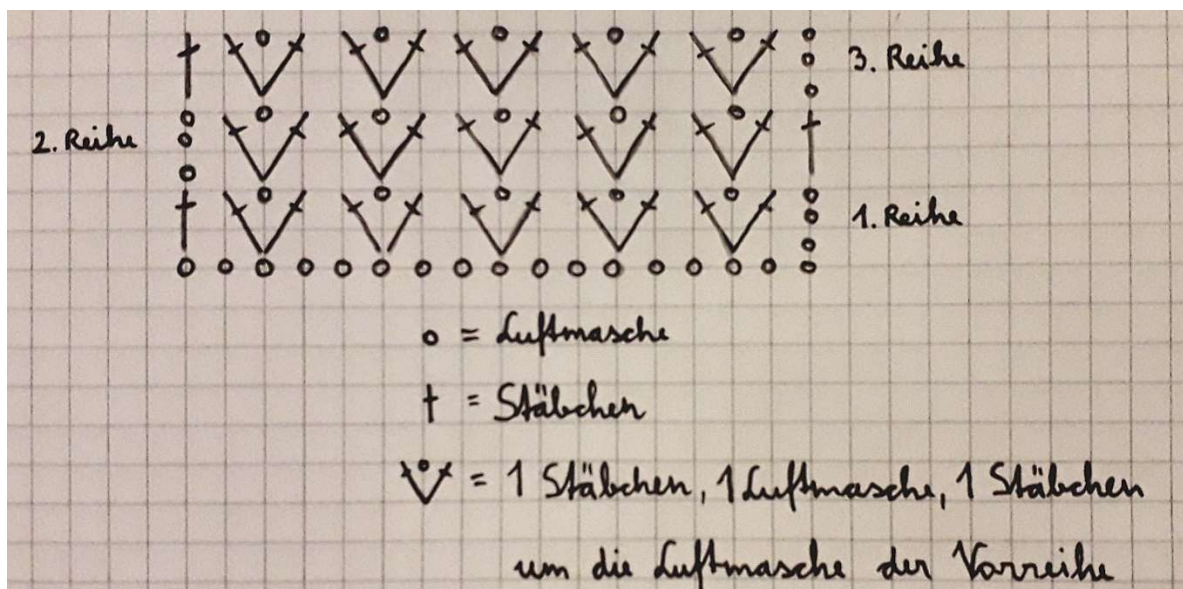 3. Reihe
2. Reihe
1. Reihe
o = Luftmasche
† = Stäbchen
= 1 Stäbchen, 1 Luftmasche, 1 Stäbchen
um die Luftmasche der Vorreihe